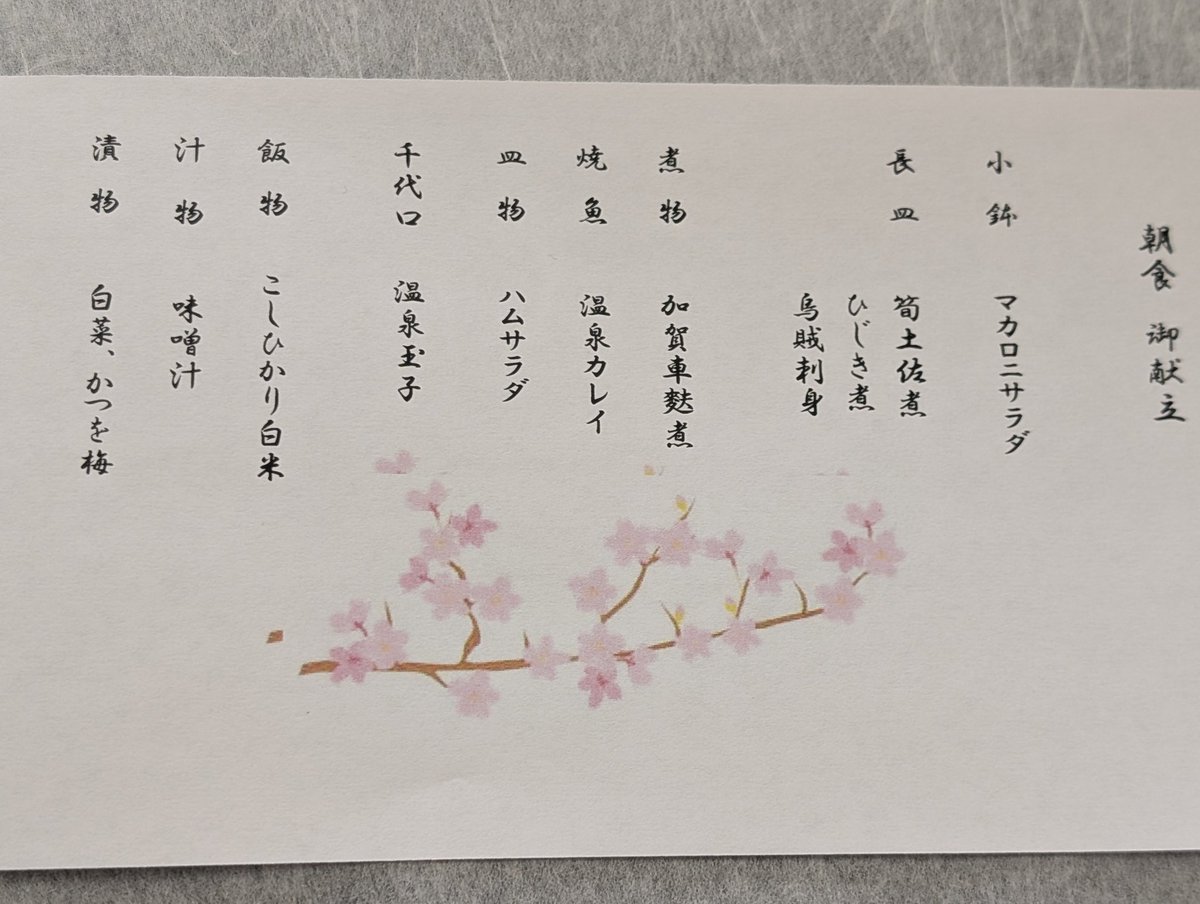 朝食 御献立
小鉢 マカロニサラダ
長皿 筍土佐煮
ひじき煮
烏賊刺身
煮物 加賀車麩煮
焼魚 温泉カレイ
皿物 ハムサラダ
千代口 温泉玉子
飯物 こしひかり白米
汁物 味噌汁
漬物 白菜、かつを梅